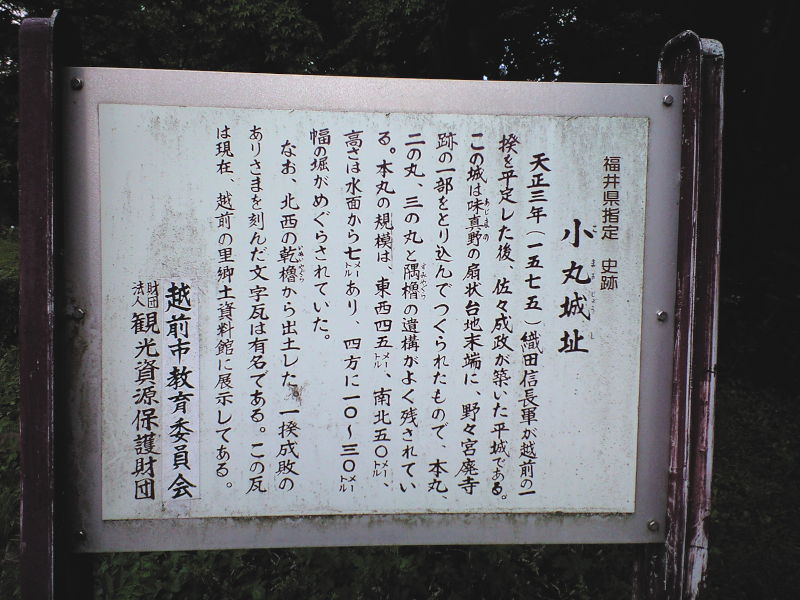 福井県指定 史跡
小丸城址
こまるじょうし
天正三年(一五七五)織田信長軍が越前の一
揆を平定した後、佐々成政が築いた平城である。
この城は味真野の扇状台地末端に、野々宮廃寺
あじまの
跡の一部をとり込んでつくられたもので、本丸、
二の丸、三の丸と隅櫓の遺構がよく残されてい
すみやぐら
る。本丸の規模は、東西四五メートル、南北五〇メートル、
高さは水面から七メートルあり、四方に一〇〜三〇メートル
幅の堀がめぐらされていた。
なお、北西の乾櫓から出土した、一揆成敗の
いぬいやぐら
ありさまを刻んだ文字瓦は有名である。この瓦
は現在、越前の里郷土資料館に展示してある。
越前市教育委員会
財団法人 観光資源保護財団